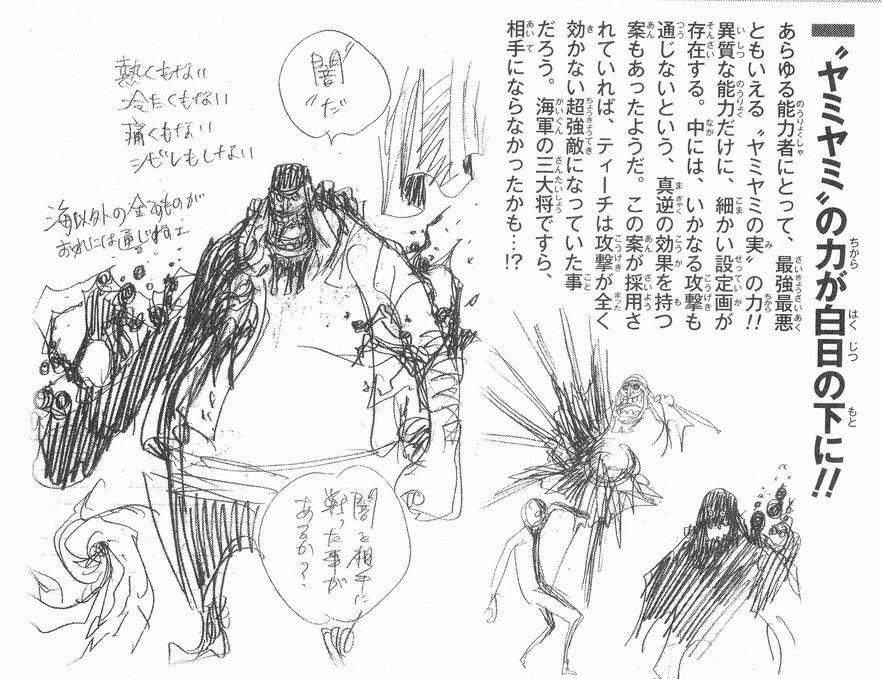 〝ヤミヤミ〟の力が白日の下に!!
あらゆる能力者にとって、最強最悪
ともいえる〝ヤミヤミの実〟の力!!
異質な能力だけに、細かい設定画が
存在する。中には、いかなる攻撃も
通じないという、真逆の効果を持つ
案もあったようだ。この案が採用さ
れていれば、ティーチは攻撃が全く
効かない超強敵になっていた事
だろう。海軍の三大将ですら、
相手にならなかったかも…!?
〝闇〟
だ
熱くもない
冷たくもない
痛くもない
シビレもしない
海以外の全るものが
おれには通じねェ
闇を相手に
戦った事が
あるか?